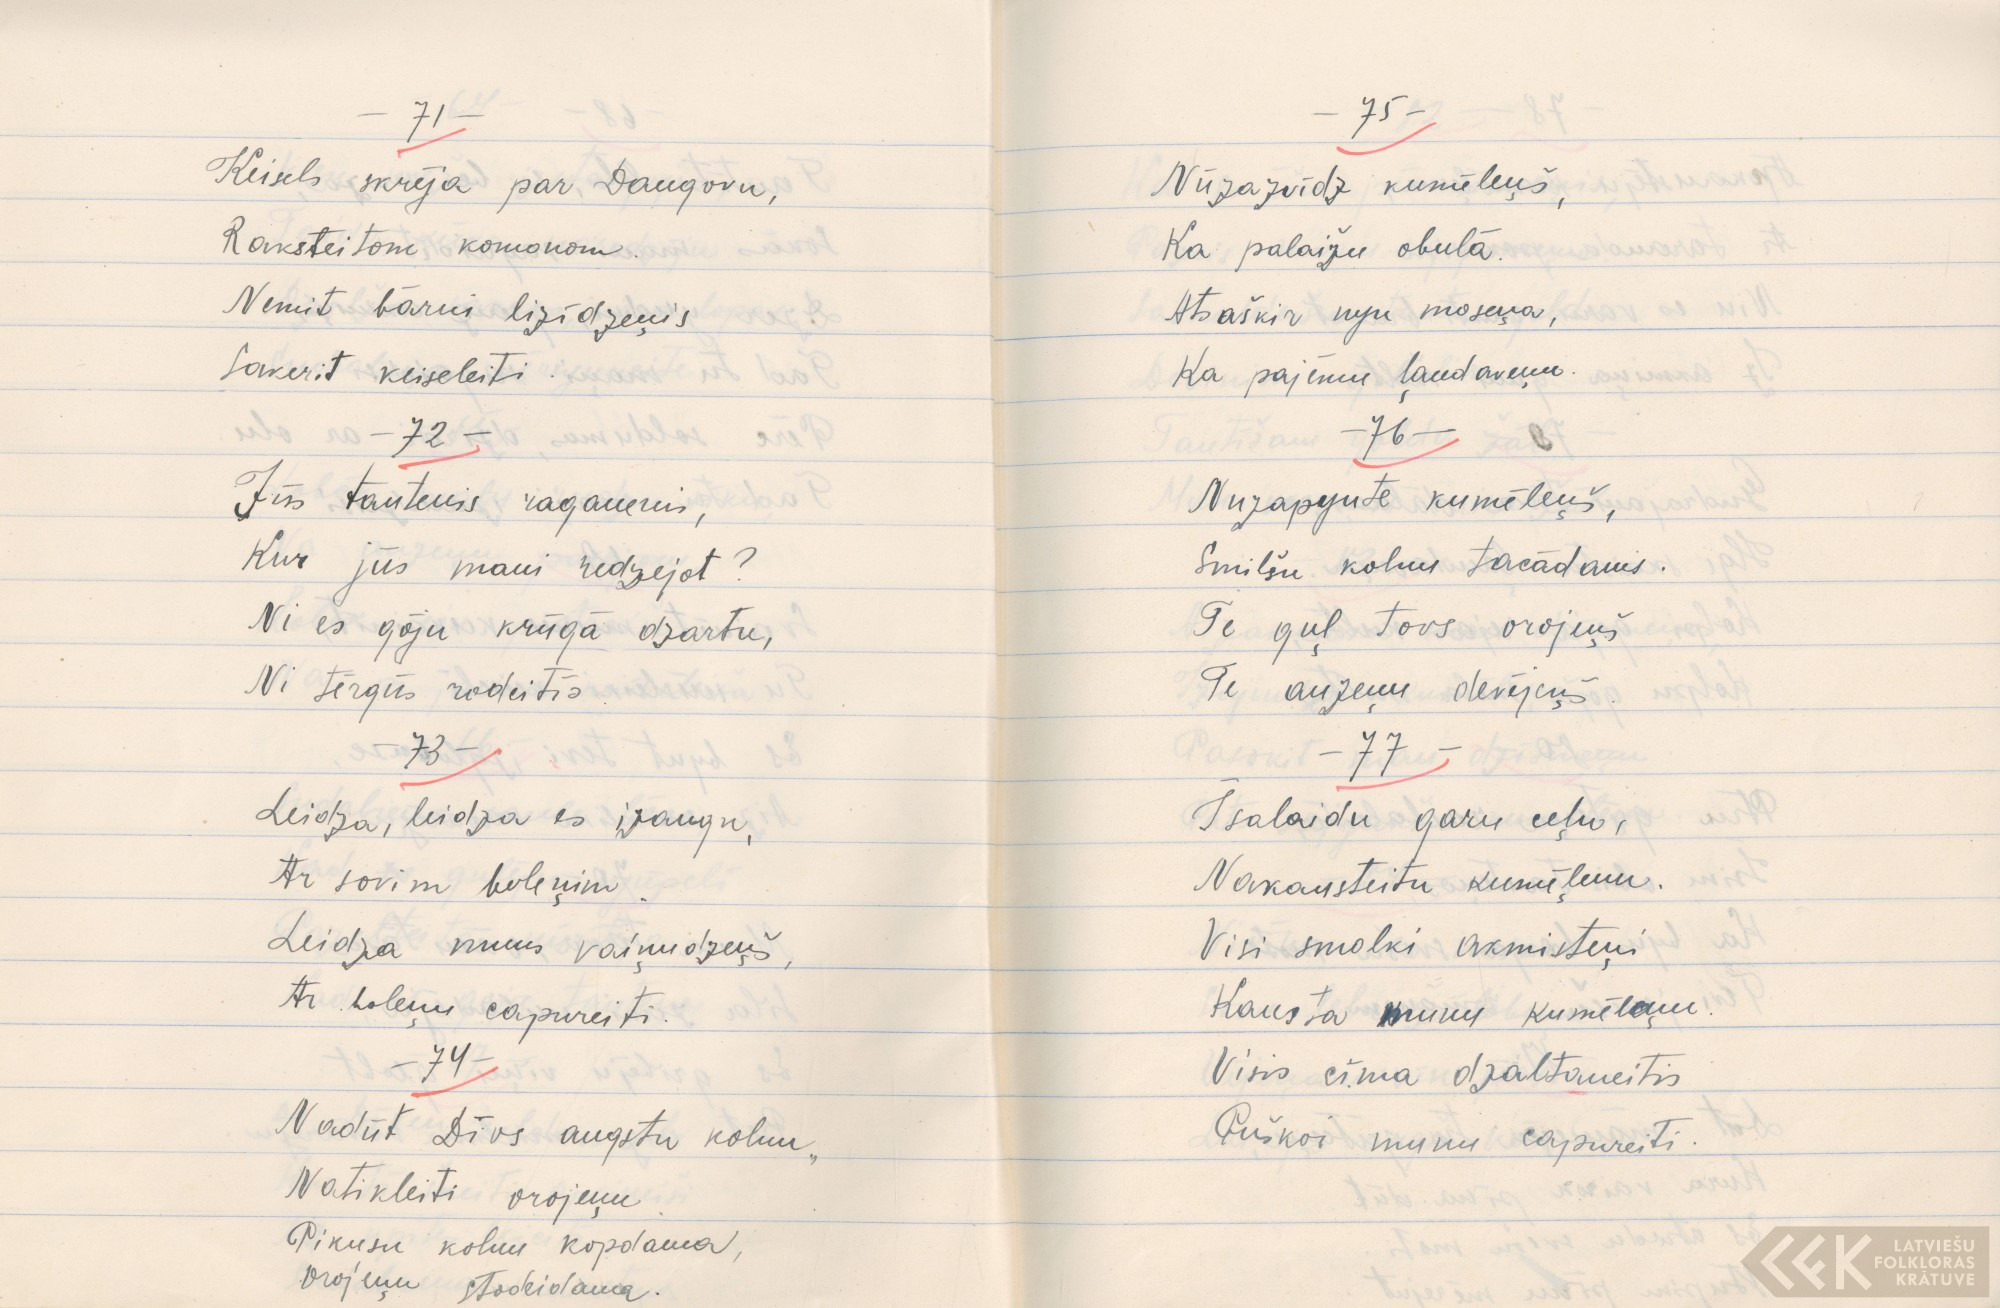 – 71 –
Keisels skrēja par Daugovu,
Raksteitom komonom.
Nemit bārni lizīdzeņis
Sakerit keiseleiti.
– 72 –
Jūs tautenis raganenis,
Kur jūs mani redzejot?
Ni es gōju krūgā dzartu,
Ni tērgūs rodeitīs.
– 73 –
Leidza, leidza es izaugu,
Ar sovim boleņim.
Leidza muns vaiņudzeņš,
Ar boleņu capureiti.
– 74 –
Nadūt Dīvs augstu kolnu,
Natikleiti orojeņu.
Pikusu kolnu kopdama,
Orojeņu stodeidama.
– 75 –
Nūzazvīdz kumēleņš,
Ka palaižu obulā.
Atsaškir nyu moseņa,
Ka pajēmu ļaudaveņu.
– 76 –
Nuzapyute kumēleņš,
Smilšu kolnu tacādams.
Te guļ tovs orojeņš
Te auzeņu devējeņš.
– 77 –
Īsalaidu garu ceļu,
Nakausteitu kumēļenu.
Visi smolki akmisteņi
Kausta munu kumēleņu.
Visis cīma dzaltaneitis
Puškoi munu capureiti.
LATVIEŠU
FOLKLORAS
KRĀTUVE